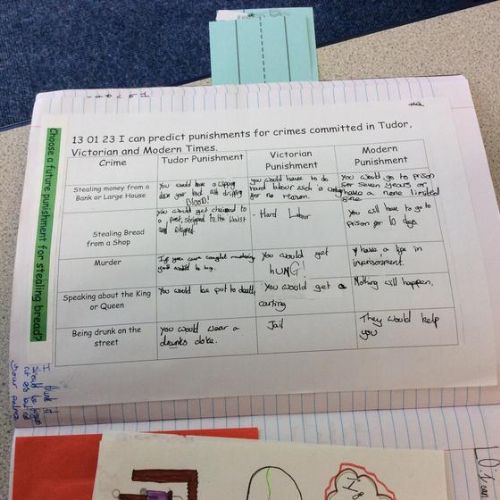 13 01 23 I can predict punishments for crimes committed in Tudor,
Victorian and Modern Times.
Choose a future punishment for stealing bread?
Crime
Tudor Punishment
Victorian
Punishment
Modern
Punishment
Stealing money from a
Bank or Large House
You would have a
your back
blood!
you would have to do
hard labour such is
for no reason.
You would go to prison
for seven years or
have a none limited
Stealing Bread
from a Shop
you would get chained to
a post, stripped to the waist
and whipped.
- Hard Labor
You will have to go to
prison for 10 days
Murder
If you were caught
you would
You would get
HUNG!
have a life in
Speaking about the King
or Queen
You would be put to death
You would get a
Nothing will happen.
Being drunk on the
street
you would wear a
drunks cloke.
Jail
They would help
you
I think it
should be